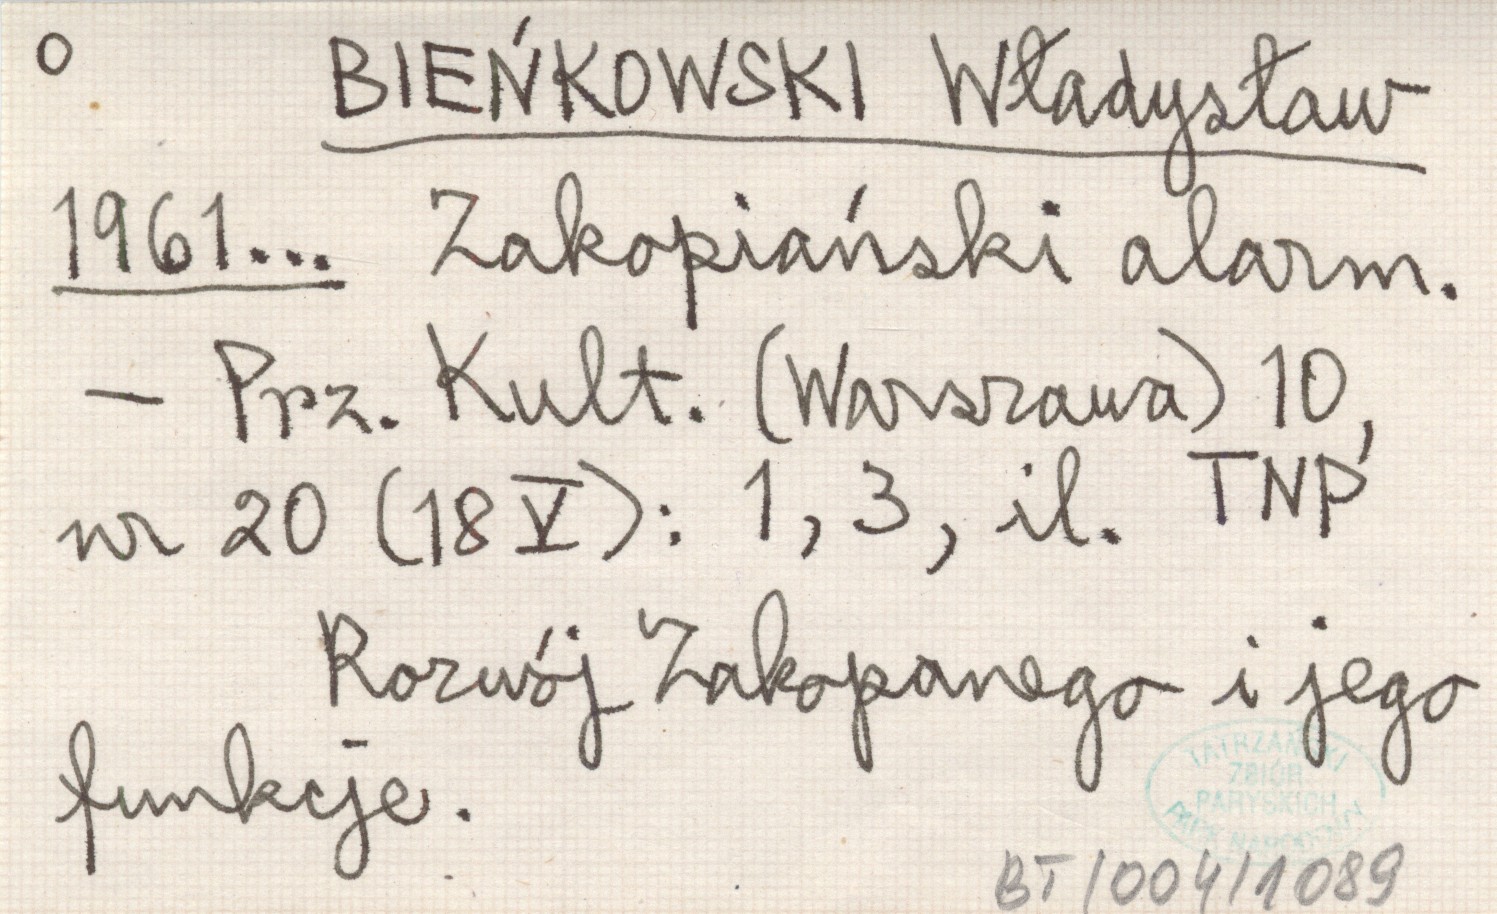 o BIEŃKOWSKI Władysław
1961... Zakopiański alarm.
— Prz. Kult. (Warszawa) 10,
nr 20 (18 V): 1, 3, il. TNP
Rozwój Zakopanego i jego
funkcje.
TATRZAŃSKI
ZBIÓR
PARYSKICH
PARK NARODOWY
BT/004/1089